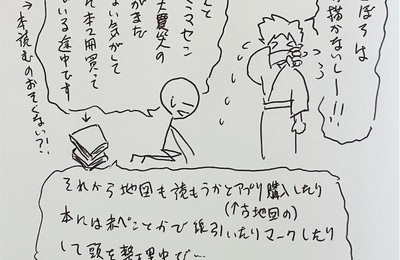 ぼろは
描かないしー!!!
んと
ミマセン
大震災の
がまた
ない気がして
れ本2冊買って
いる途中です
→本読むのおそくない?!
それから地図も読もうかとアプリ購入したり
(↑古地図の)
本には赤ペンとかで線引いたりマークしたり
して頭を整理中で…